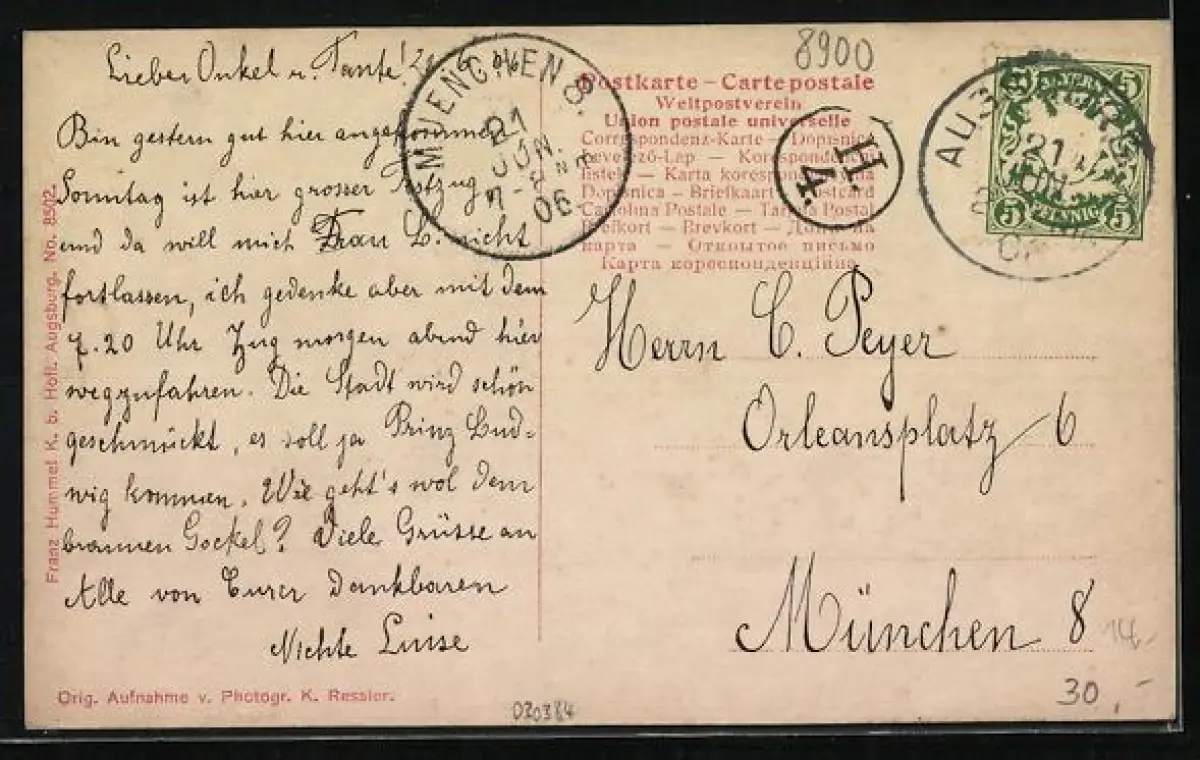 Lieber Onkel u. Tante! 20. 6. 06
Bin gestern gut hier angekommen,
Sonntag ist hier grosser Festzug
und da will mich Frau L. nicht
fortlassen, ich gedenke aber mit dem
7.20 Uhr Zug morgen abend hier
wegzufahren. Die Stadt wird schön
geschmückt, es soll ja Prinz Lud-
wig kommen. Wie geht's wol dem
braunen Gockel? Viele Grüsse an
Alle von Eurer dankbaren
Nichte Luise
Franz Hummel K. b. Hofl. Augsburg. No. 8502.
Orig. Aufnahme v. Photogr. K. Ressler.
020384
MUENCHEN 8.
21
JUN.
7-8 
06
8900
Postkarte – Carte postale
Weltpostverein
Union postale universelle
Correspondenz-Karte – Dopisnice
Levelező-Lap – Korespondenční
lístek – Karta korespon
Dopisnica – Briefkaart – Postcard
Cartolina Postale – Tarjeta Postal
Brefkort – Brevkort –
карта – Открытое письмо
Карта кореспонденційна
H
4.
AU
21
JUN
BAYERN
5 5
PFENNIG
5 5
Herrn C. Peyer
Orleansplatz 6
München 8
14.-
30,-